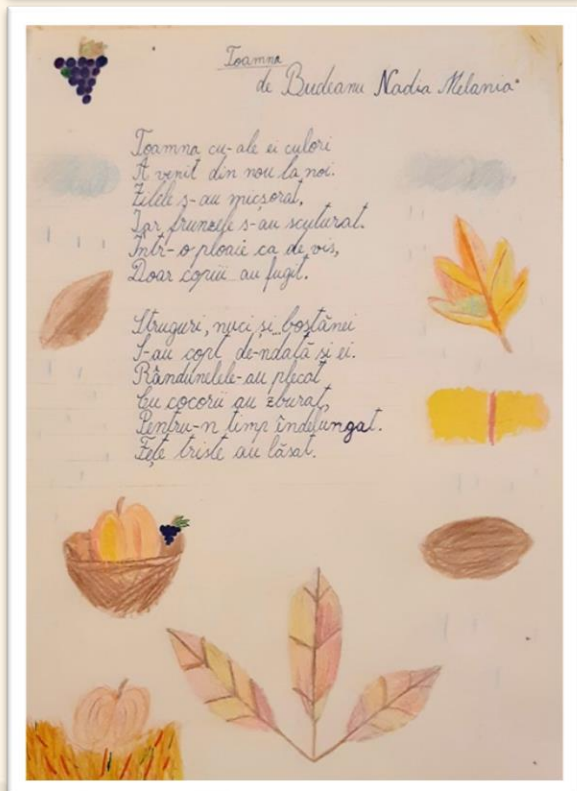 Toamna
de Budeanu Nadia Melania
Toamna cu-ale ei culori
A venit din nou la noi.
Zilele s-au micșorat,
Iar frunzele s-au scuturat.
Într-o ploaie ca de vis,
Doar copiii au fugit.
Struguri, nuci și boștănei
S-au copt de-ndată și ei.
Rândunelele-au plecat
Cu cocorii au zburat,
Pentru-n timp îndelungat.
Fețe triste au lăsat.